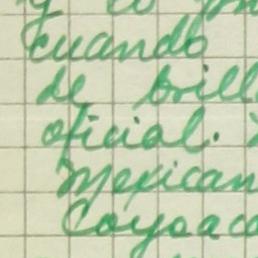 y lo
cuando
de brill
oficial.
Mexican
Coyoaca